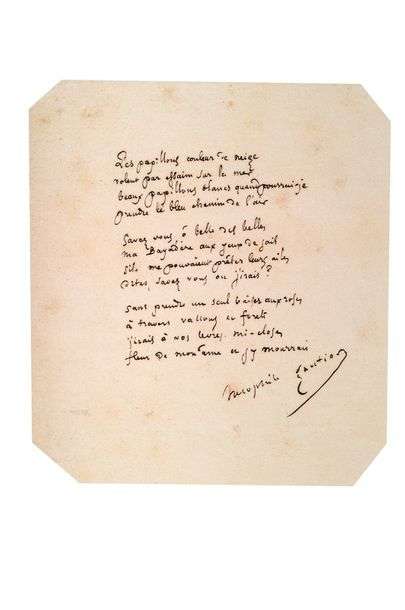 Les papillons couleur de neige
volent par essaim sur la mer
beaux papillons blancs quand pourrai-je
prendre le bleu chemin de l'air
Savez vous ô belle des belles
ma Bayadère aux yeux de jais
s'ils me pouvaient prêter leurs ailes
dites, savez vous ou j'irais ?
Sans prendre un seul baiser aux roses
à travers vallons et forêts
j'irais à vos levres mi-closes
fleur de mon ame et j'y mourrais
Theophile Gautier